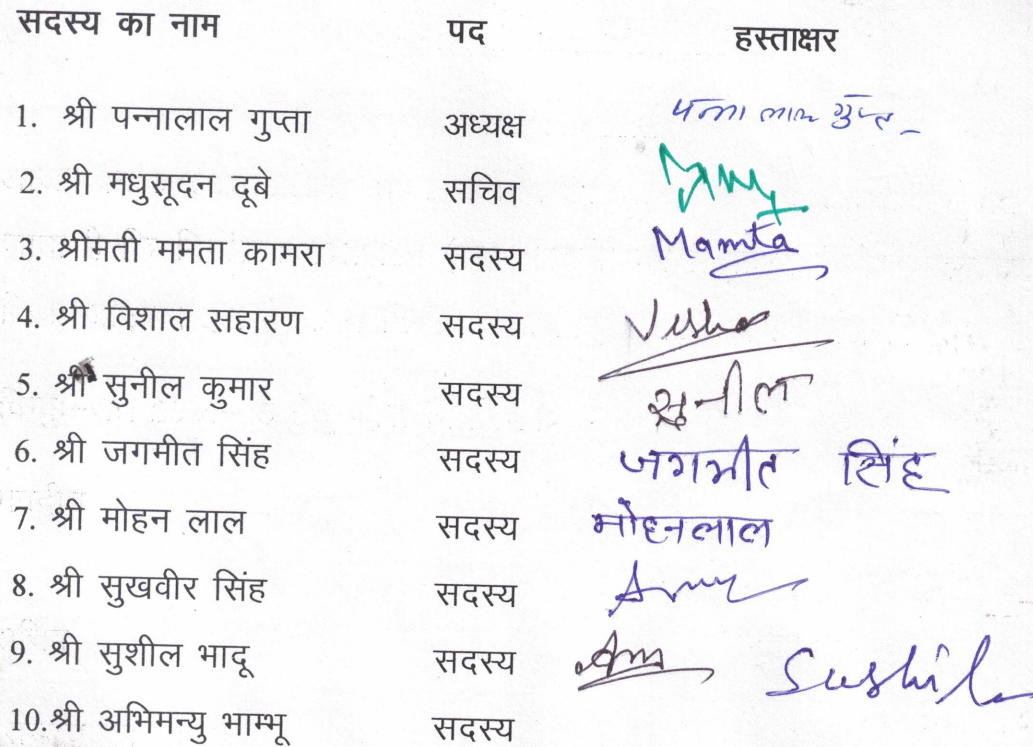 सदस्य का नाम पद हस्ताक्षर
1. श्री पन्नालाल गुप्ता अध्यक्ष पन्ना लाल गुप्त
2. श्री मधुसूदन दूबे सचिव
3. श्रीमती ममता कामरा सदस्य Mamta
4. श्री विशाल सहारण सदस्य
5. श्री सुनील कुमार सदस्य सुनील
6. श्री जगमीत सिंह सदस्य जगमीत सिंह
7. श्री मोहन लाल सदस्य मोहनलाल
8. श्री सुखवीर सिंह सदस्य
9. श्री सुशील भादू सदस्य Sushil
10.श्री अभिमन्यु भाम्भू सदस्य